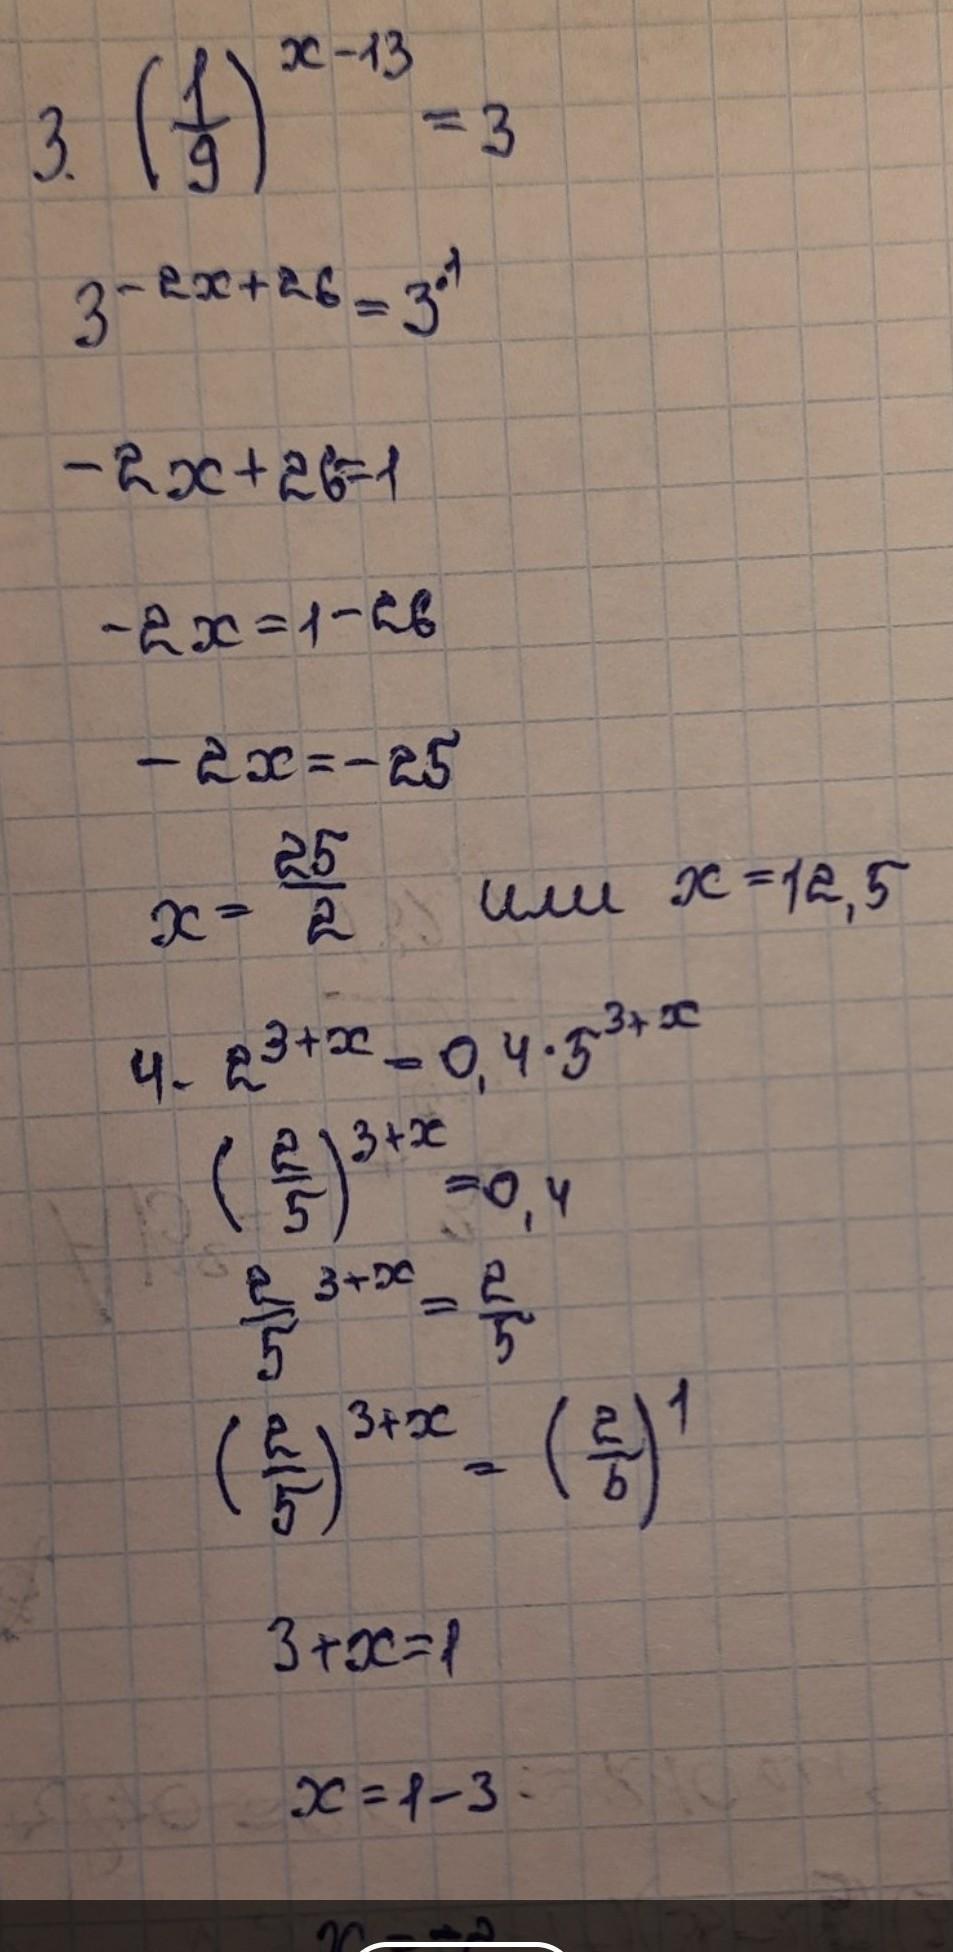 3. (1/9)^(x-13) = 3
3^(-2x+26) = 3^1
-2x+26=1
-2x=1-26
-2x=-25
x=25/2 или x=12,5
4. 2^(3+x)=0,4·5^(3+x)
(2/5)^(3+x)=0,4
2/5^(3+x)=2/5
(2/5)^(3+x) = (2/5)^1
3+x=1
x=1-3